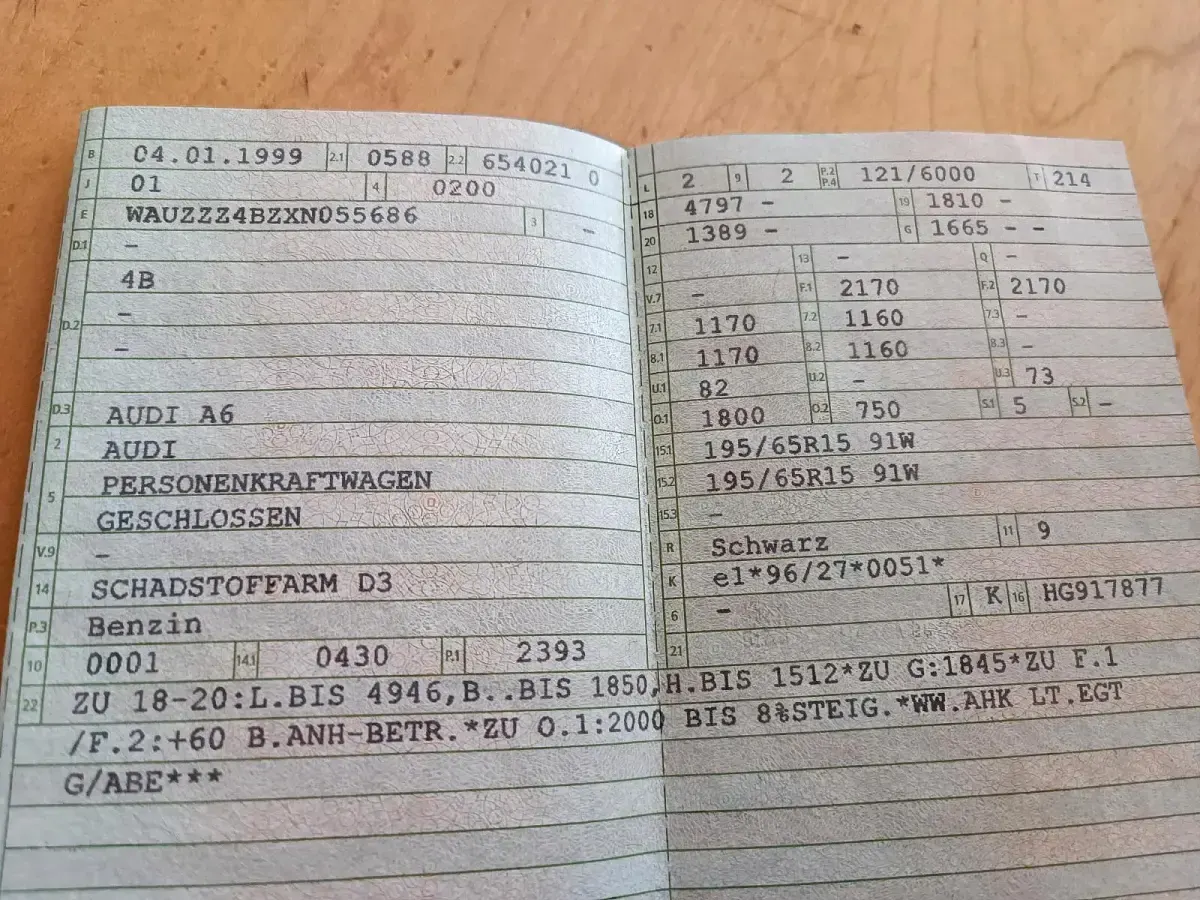 B 04.01.1999 2.1 0588 2.2 654021 0
J 01 4 0200
E WAUZZZ4BZXN055686 3 -
D.1 -
4B
D.2 -
-
D.3 AUDI A6
2 AUDI
5 PERSONENKRAFTWAGEN
GESCHLOSSEN
V.9 -
14 SCHADSTOFFARM D3
P.3 Benzin
10 0001 14.1 0430 P.1 2393
L 2 9 2 P.2 P.4 121/6000 T 214
18 4797 - 19 1810 -
20 1389 - G 1665 - -
12 13 - Q -
V.7 - F.1 2170 F.2 2170
7.1 1170 7.2 1160 7.3 -
8.1 1170 8.2 1160 8.3 -
U.1 82 U.2 - U.3 73
O.1 1800 O.2 750 S.1 5 S.2 -
15.1 195/65R15 91W
15.2 195/65R15 91W
15.3 -
R Schwarz 11 9
K e1*96/27*0051*
6 - 17 K 16 HG917877
21
22 ZU 18-20:L.BIS 4946,B..BIS 1850,H.BIS 1512*ZU G:1845*ZU F.1
/F.2:+60 B.ANH-BETR.*ZU O.1:2000 BIS 8%STEIG.*WW.AHK LT.EGT
G/ABE***